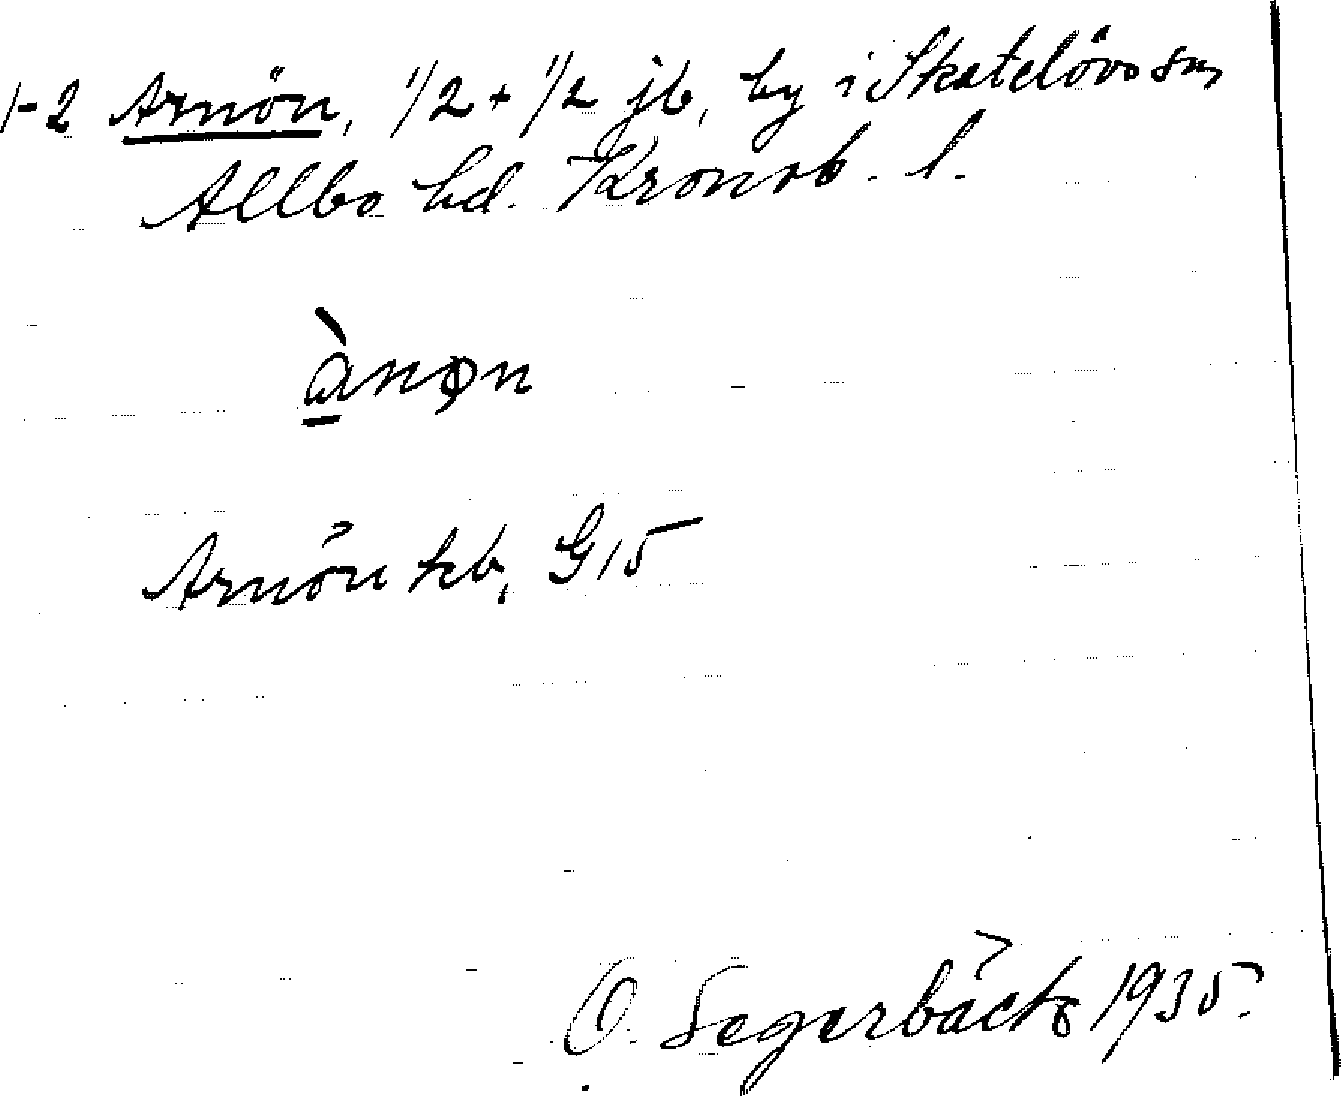 1-2 Arnön, 1/2 + 1/2 jb, by i Skatelövs sn
Allbo hd. Kronob. l.
ànøn
Arnön kb, G15
O. Segerbäck 1935.